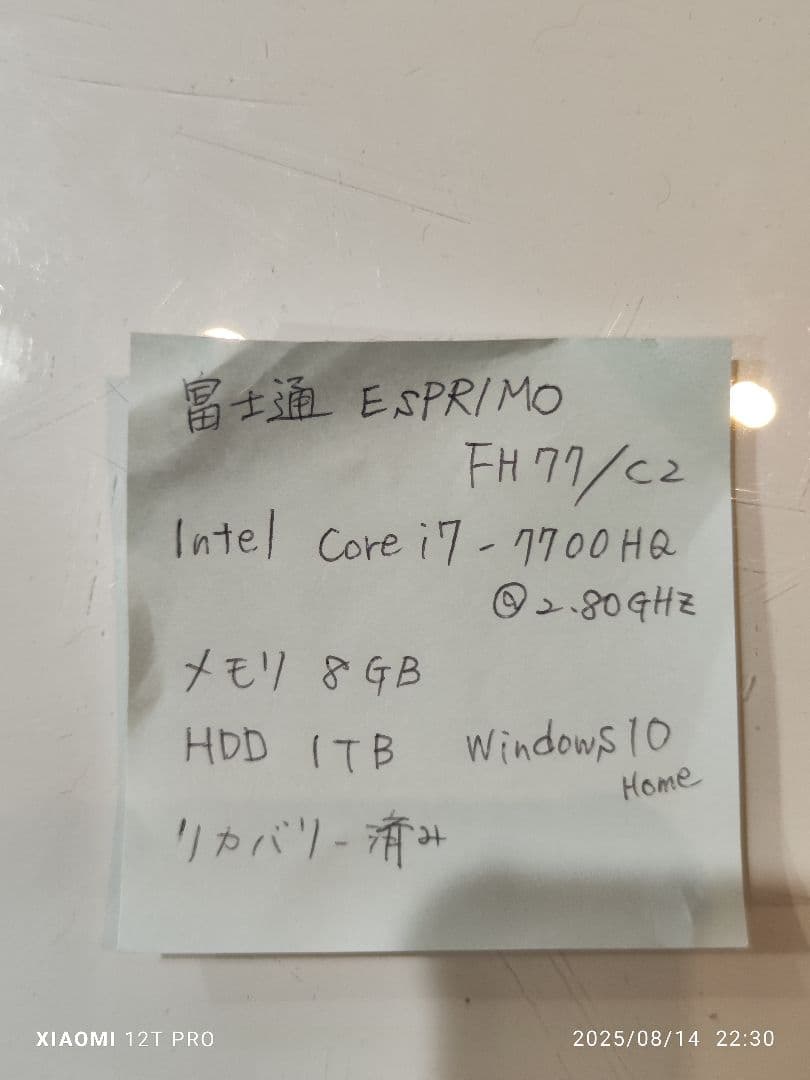 富士通 ESPRIMO
FH77/C2
Intel Core i7-7700HQ
@2.80GHZ
メモリ 8GB
HDD 1TB Windows10
Home
リカバリー済み
XIAOMI 12T PRO
2025/08/14 22:30